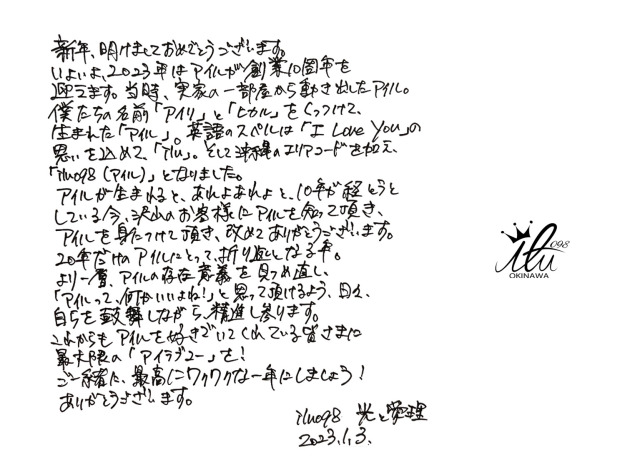 新年、明けましておめでとうございます。
いよいよ、2023年はアイルが創業10周年を
迎えます。当時、実家の一部屋から動き出したアイル。
僕たちの名前「アイリ」と「ヒカル」をくっつけて、
生まれた「アイル」。英語のスペルは「I Love You」の
思いを込めて、「ilu」。そして沖縄のエリアコードを加え、
「ilu098(アイル)」となりました。
アイルが生まれると、あれよあれよと、10年が経とうと
している今、沢山のお客様にアイルを知って頂き、
アイルを身につけて頂き、改めてありがとうございます。
20年だけのアイルにとって、折り返しとなる年。
より一層、アイルの存在意義を見つめ直し、
「アイルって、何かいいよね!」と思って頂けるよう、日々、
自らを鼓舞しながら、精進し参ります。
これからもアイルを好きでいてくれている皆さまに
最大限の「アイラブユー」を!
ご一緒に、最高にワクワクな一年にしましょう!
ありがとうございます。
ilu098 光と愛理
2023.1.3.
ilu098
OKINAWA